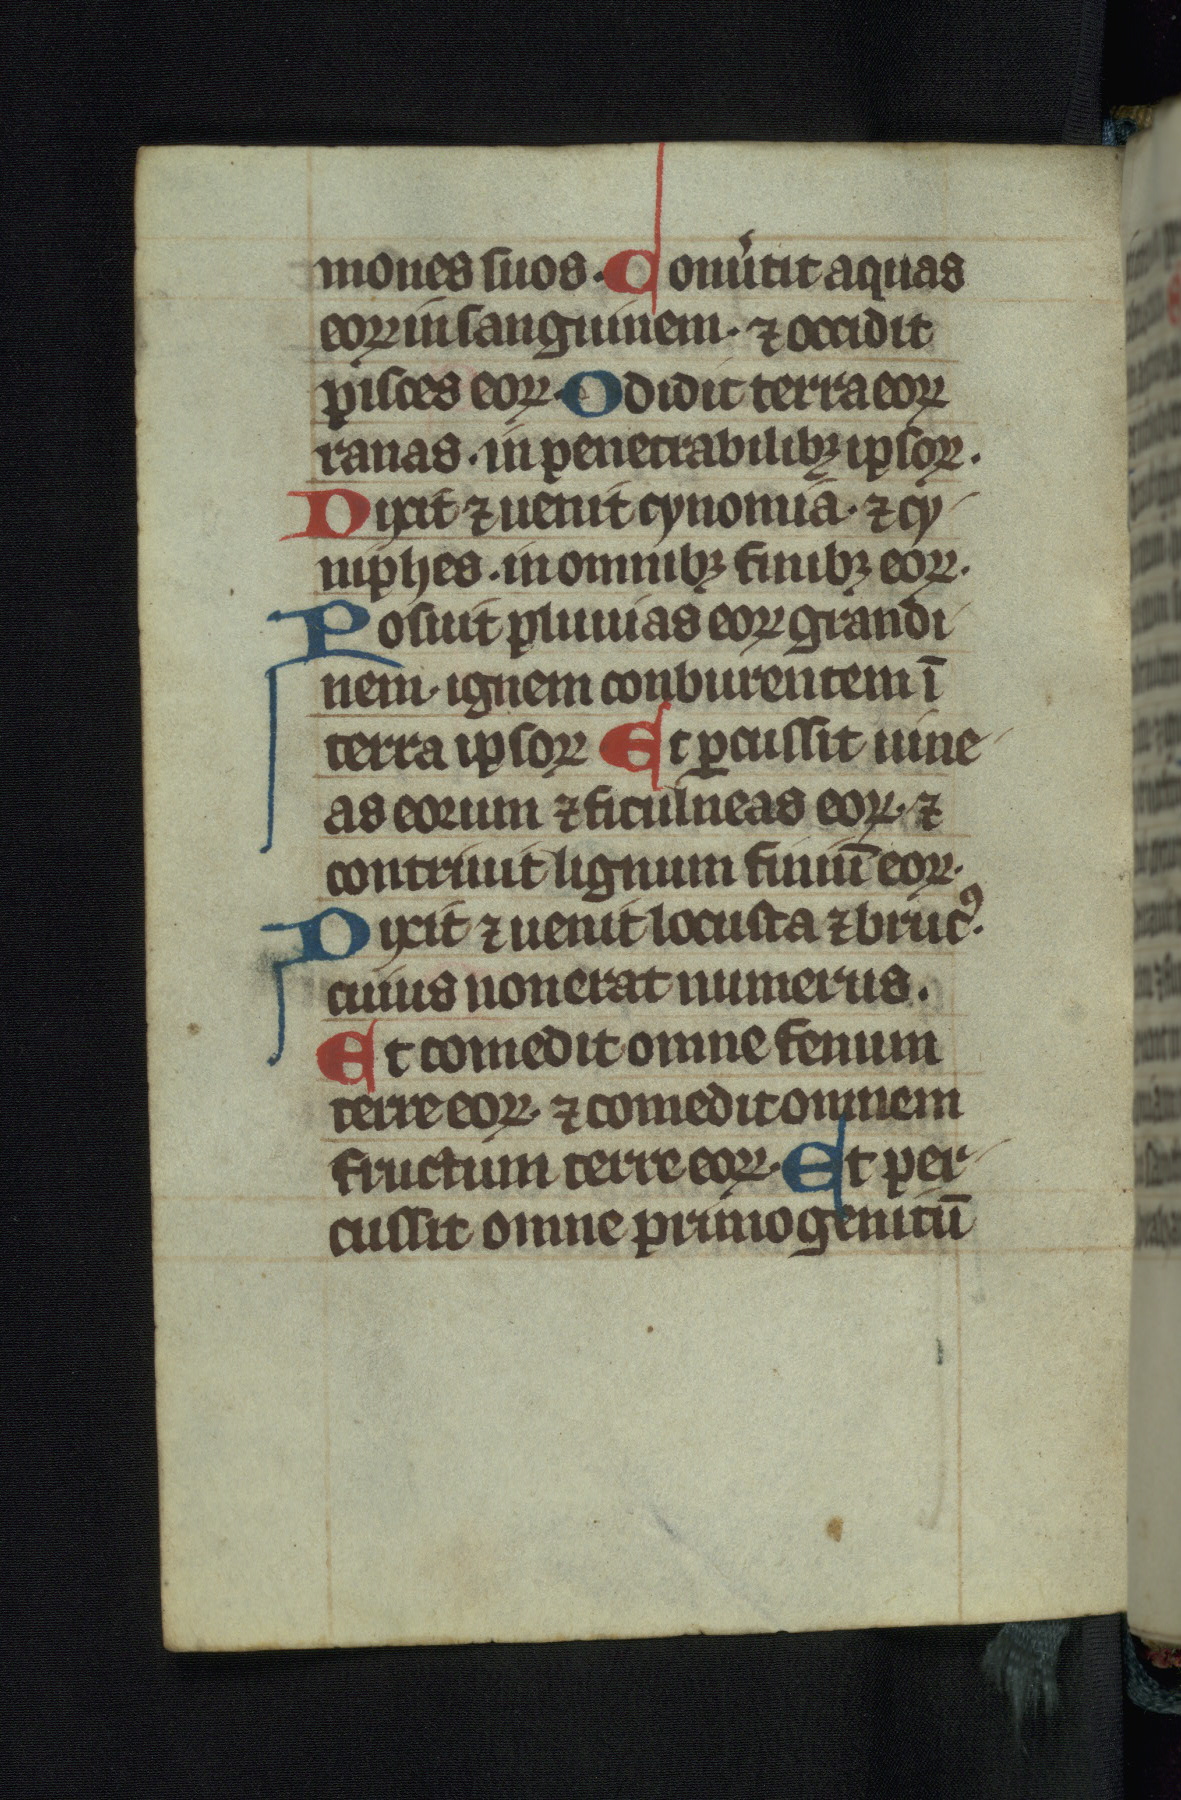 mones suos. Conu͛tit aquas
eoꝝ in sanguinem. ⁊ occidit
pisces eoꝝ. Odidit terra eoꝝ
ranas. in penetrabilibꝫ ipsoꝝ.
Dixit ⁊ uenit cynomia. ⁊ cy
niphes. in omnibꝫ finibꝫ eoꝝ.
Posuit pluuias eoꝝ grandi
nem. ignem conburentem ī
terra ipsoꝝ Et ꝑcussit uine
as eorum ⁊ ficulneas eoꝝ. ⁊
contriuit lignum finiū eoꝝ.
Dixit ⁊ uenit locusta ⁊ brucꝰ.
cuius non erat numerus.
Et comedit omne fenum
terre eoꝝ. ⁊ comedit omnem
fructum terre eoꝝ. Et per
cussit omne primogenitū